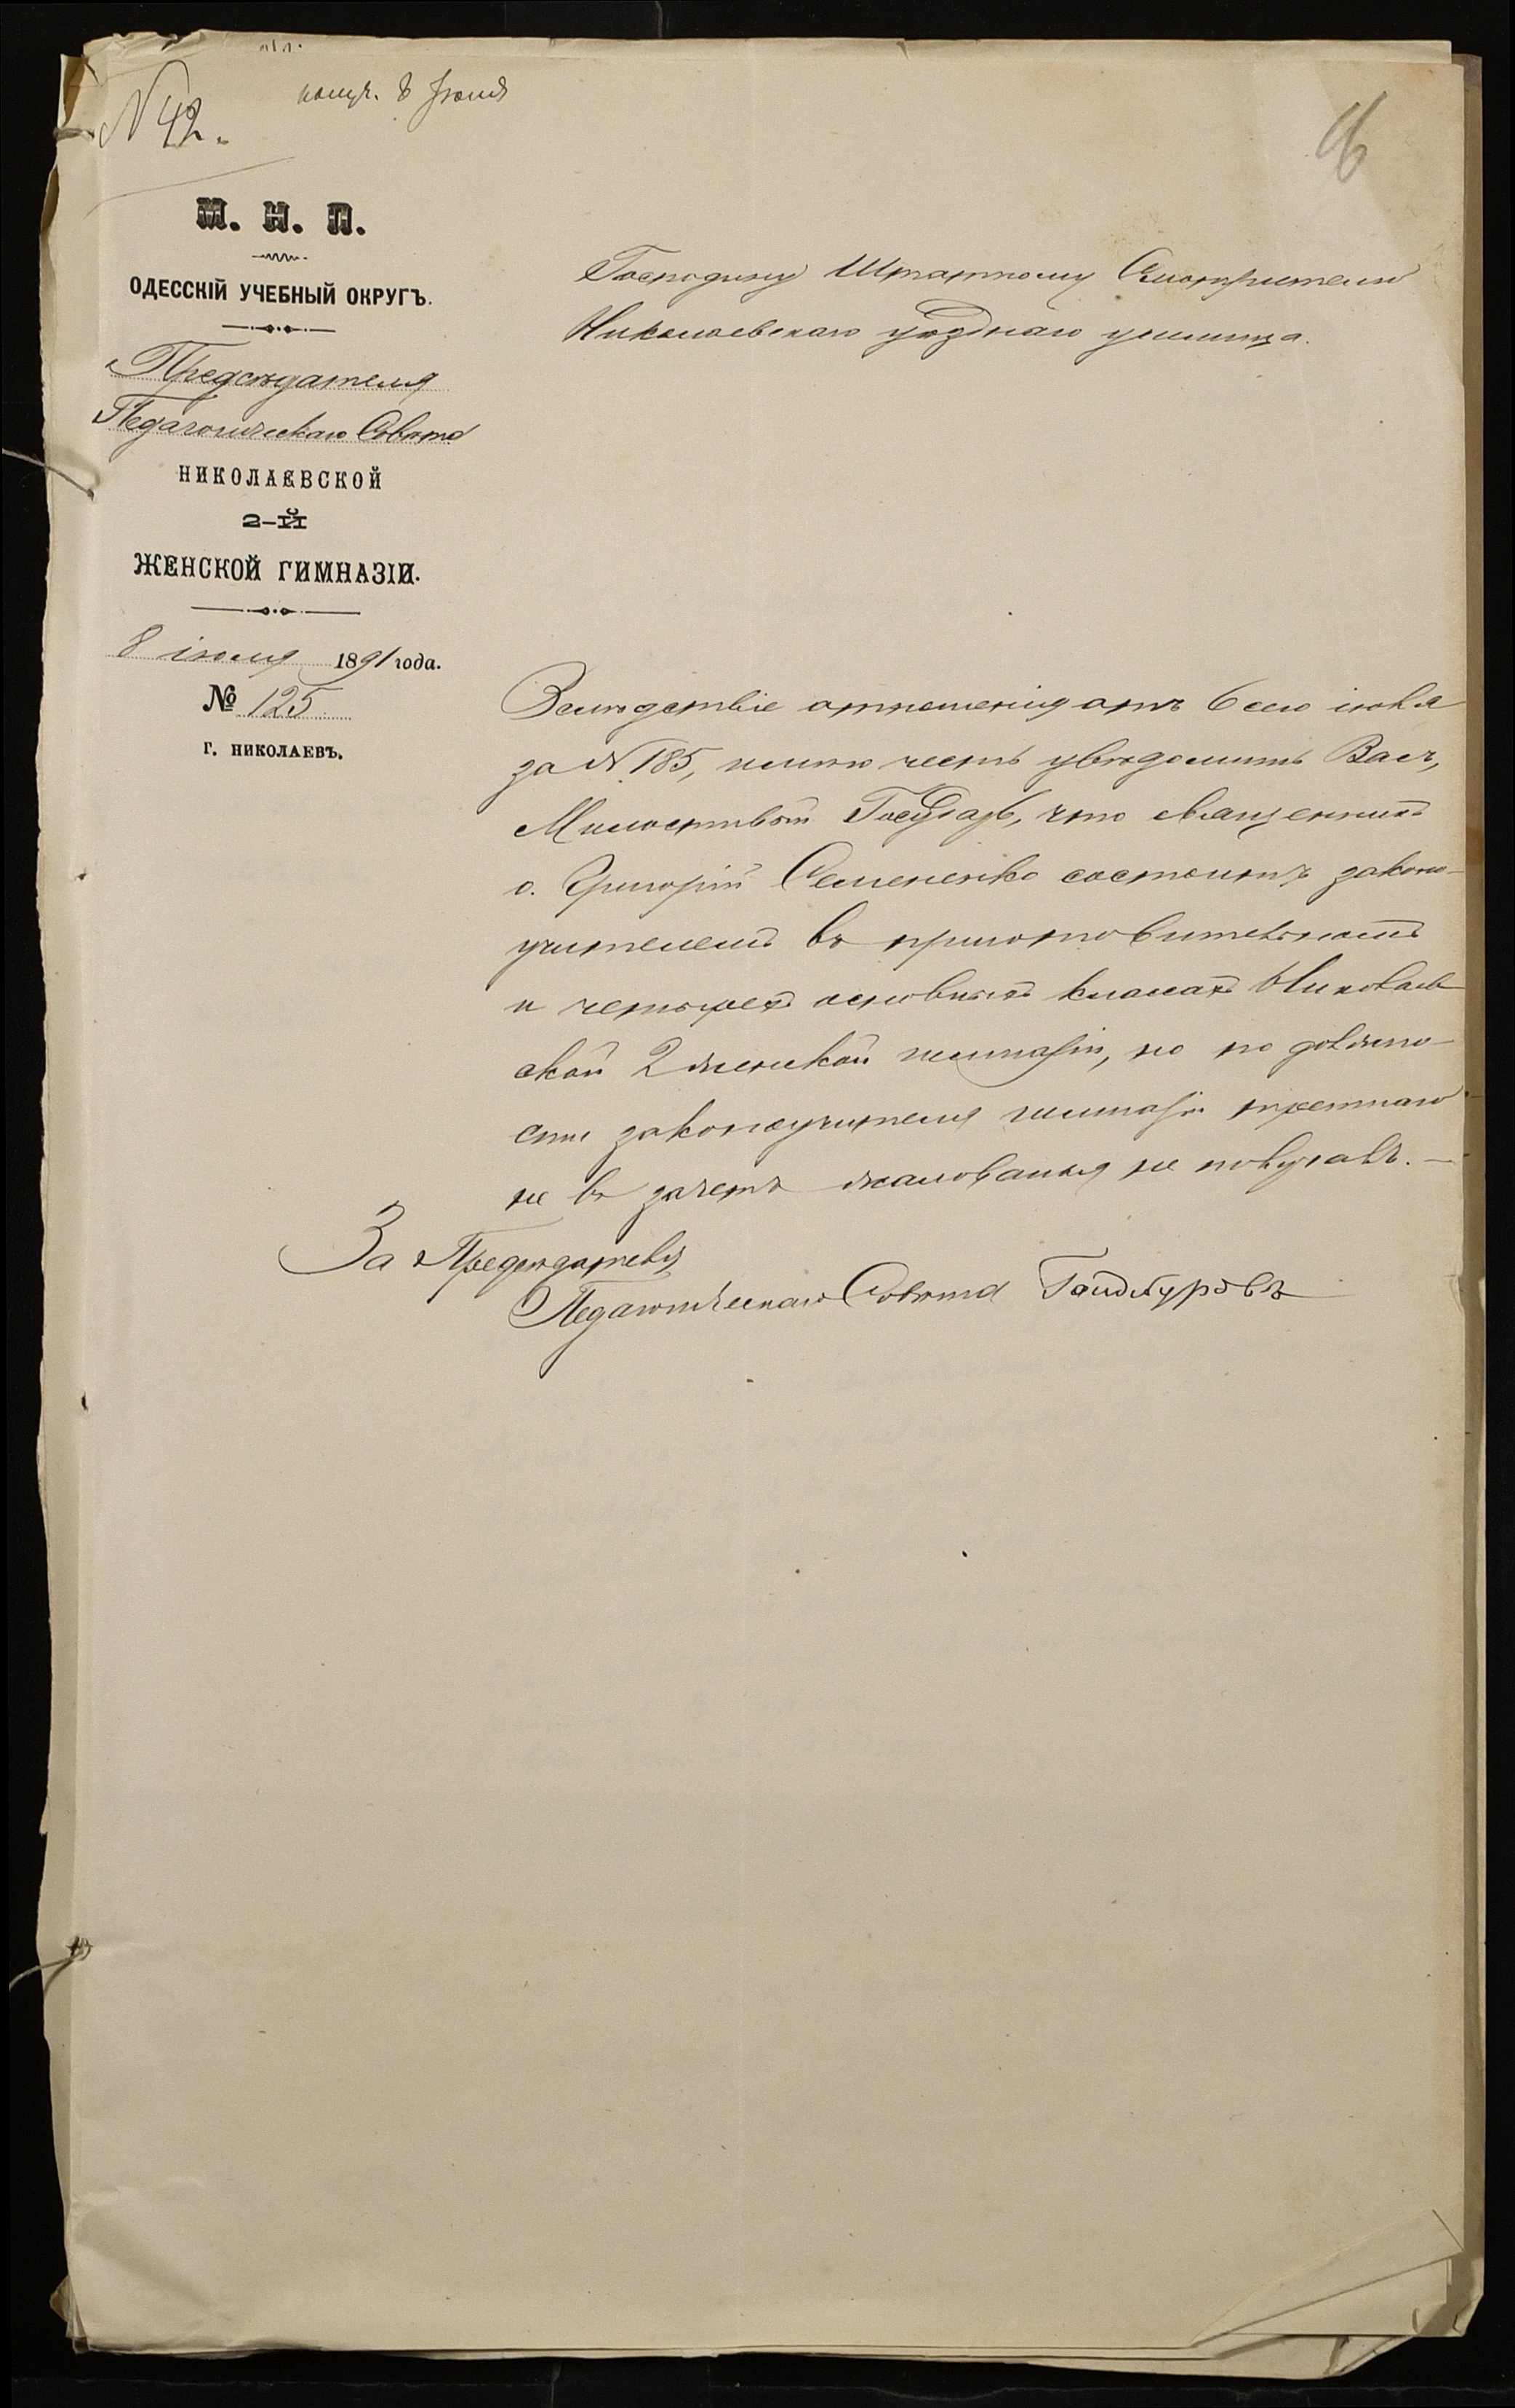 № 42.
получ. 8 Іюля
М. Н. П.
ОДЕССКІЙ УЧЕБНЫЙ ОКРУГЪ.
Предсѣдателя
Педагогическаго Совѣта
НИКОЛАЕВСКОЙ
2-Й
ЖЕНСКОЙ ГИМНАЗІИ.
8 іюля 1891 года.
№ 125
Г. НИКОЛАЕВЪ.
Господину Штатному Смотрителю
Николаевскаго уѣзднаго училища.
Вслѣдствіе отношенія отъ 6 сего іюля
за № 185, имѣю честь увѣдомить Васъ,
Милостивый Государь, что священникъ
о. Григорій Семененко состоитъ законо-
учителемъ въ приготовительномъ
и четырехъ основныхъ классахъ Николаев-
ской 2 женской гимназіи, но по должно-
сти законоучителя гимназіи третнаго
не въ зачетъ жалованья не получалъ. —
За Предсѣдателя
Педагогическаго Совѣта